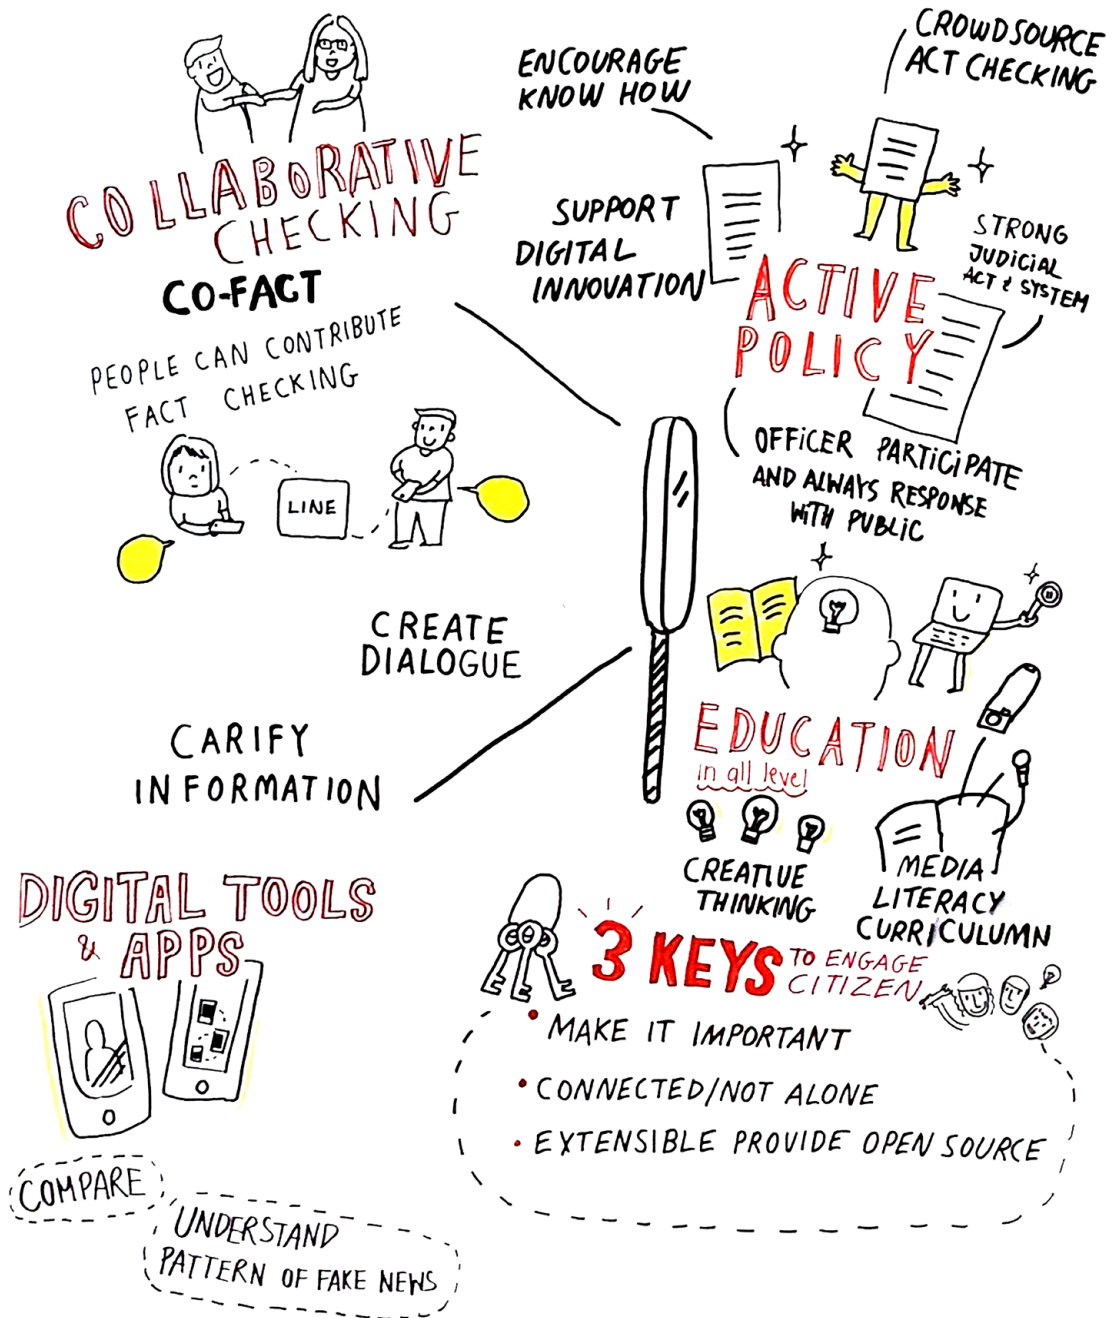 COLLABORATIVE
CHECKING
CO-FACT
PEOPLE CAN CONTRIBUTE
FACT CHECKING
LINE
CREATE
DIALOGUE
CARIFY
INFORMATION
DIGITAL TOOLS
& APPS
COMPARE
UNDERSTAND
PATTERN OF FAKE NEWS
ENCOURAGE
KNOW HOW
CROWDSOURCE
ACT CHECKING
SUPPORT
DIGITAL
INNOVATION
STRONG
JUDICIAL
ACT & SYSTEM
ACTIVE
POLICY
OFFICER PARTICIPATE
AND ALWAYS RESPONSE
WITH PUBLIC
EDUCATION
in all level
CREATIVE
THINKING
MEDIA
LITERACY
CURRICULUMN
3 KEYS TO ENGAGE
CITIZEN
• MAKE IT IMPORTANT
• CONNECTED/NOT ALONE
• EXTENSIBLE PROVIDE OPEN SOURCE